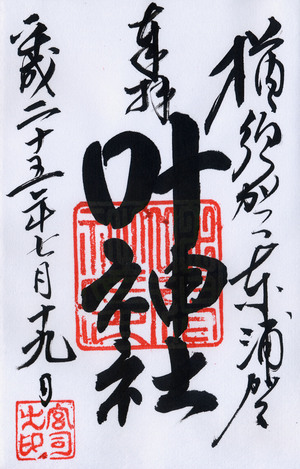 横須賀市東浦賀
奉拝
叶神社
平成二十五年七月十九日
宮司之印